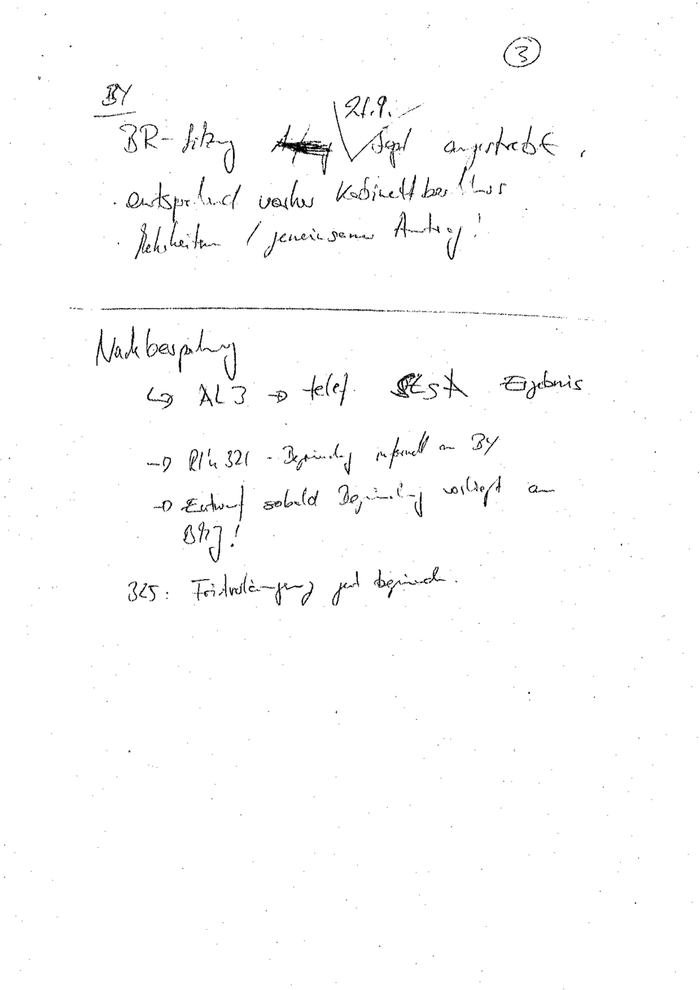 3
BY
21.9.
BR-Sitzung Sept angestrebt,
· entsprechend vorher Kabinettbeschluss
· Mehrheiten / gemeinsamer Antrag!
Nachbesprechung
↳ AL 3 → telef. Ergebnis
→ 321 - Begründung informell an BY
→ Entwurf sobald Begründung vorliegt an
BMJ!
325: Fristverlängerung gut begründen.